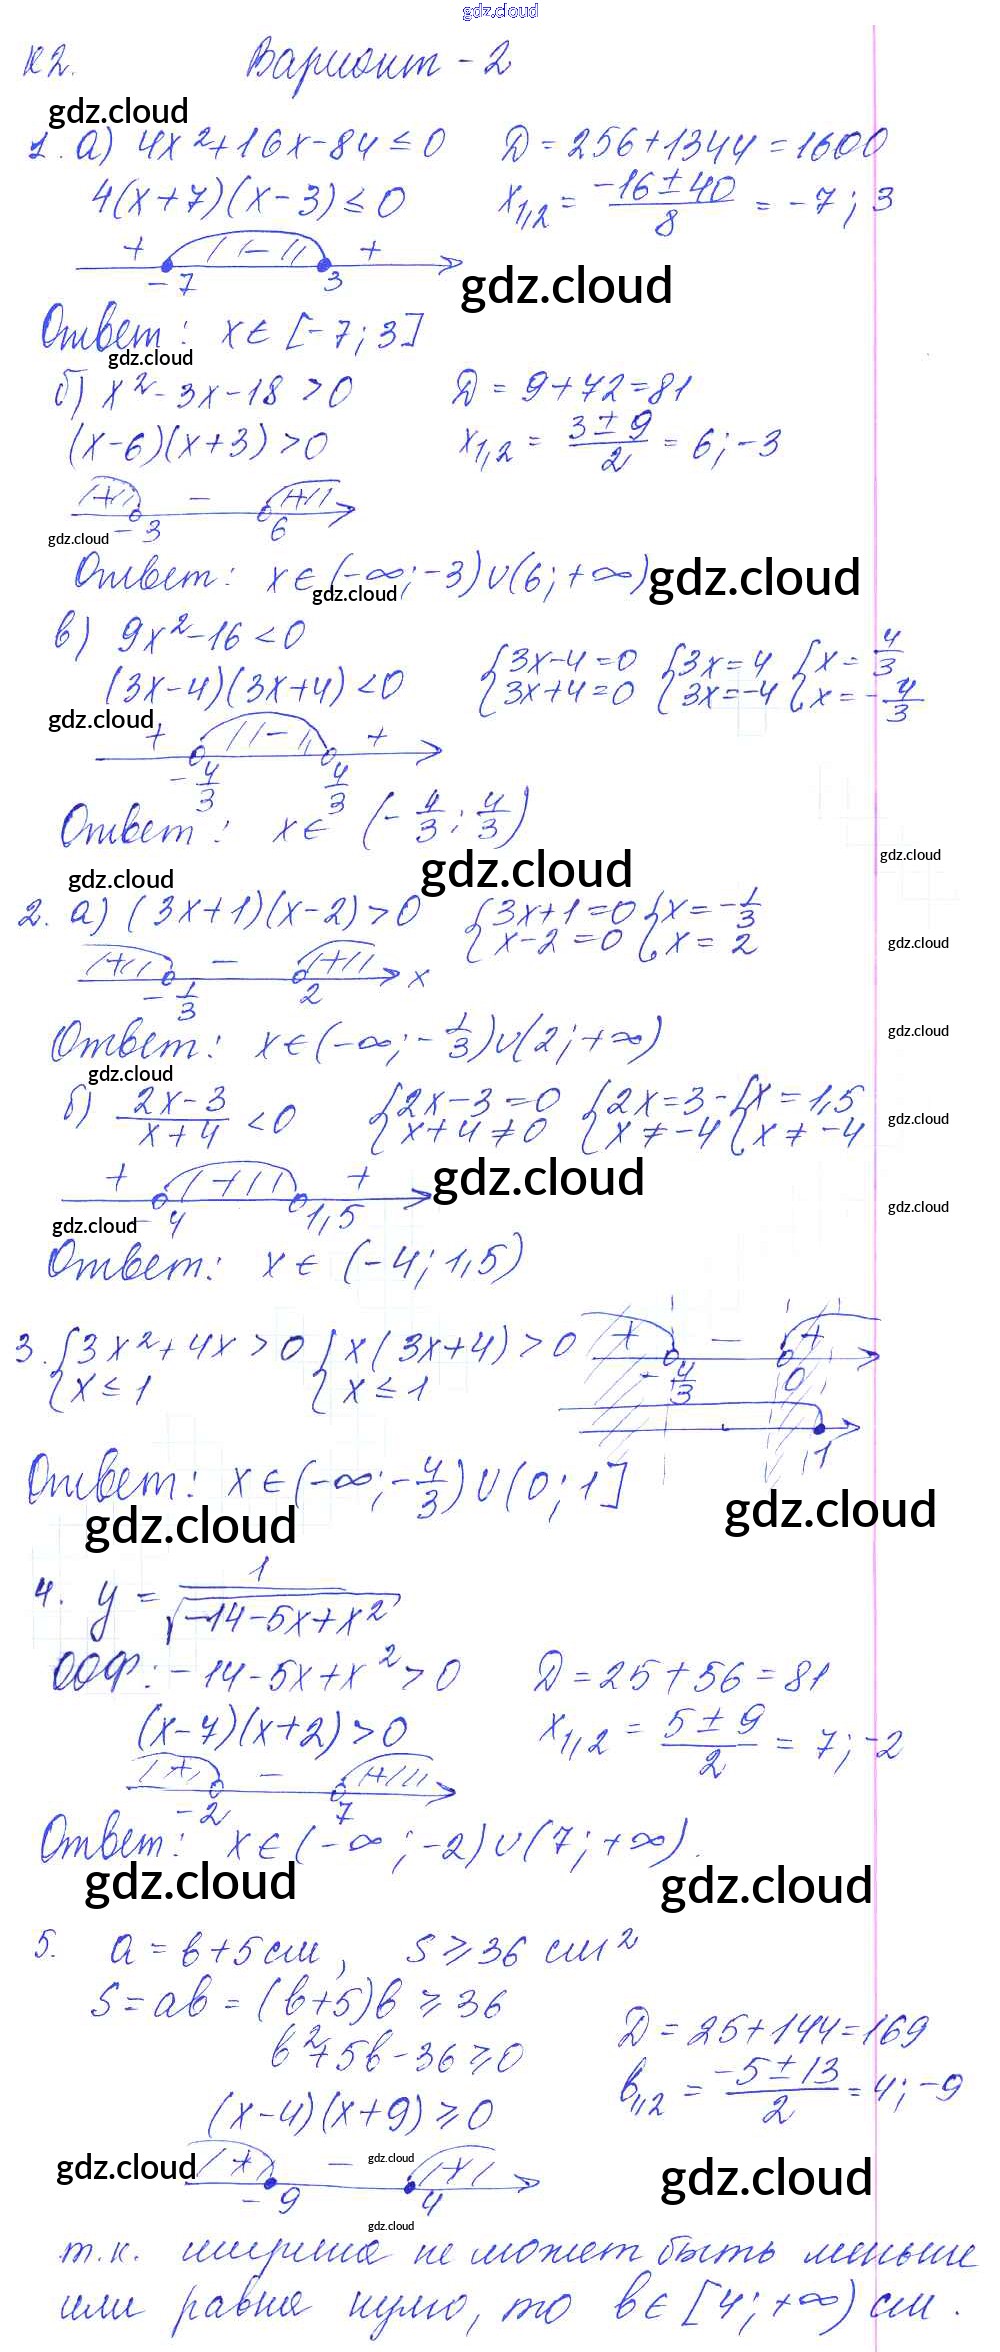 gdz.cloud
К2. Вариант - 2
gdz.cloud
1. а) 4x²+16x-84 ≤ 0 D = 256+1344 = 1600
4(x+7)(x-3) ≤ 0 x₁,₂ = (-16 ± 40)/8 = -7; 3
+ - +
-7 3
gdz.cloud
Ответ: x ∈ [-7; 3]
gdz.cloud
б) x²-3x-18 > 0 D = 9+72 = 81
(x-6)(x+3) > 0 x₁,₂ = (3 ± 9)/2 = 6; -3
+ - +
-3 6
gdz.cloud
Ответ: x ∈ (-∞; -3) ∪ (6; +∞)
gdz.cloud gdz.cloud
в) 9x²-16 < 0
(3x-4)(3x+4) < 0 {3x-4=0 {3x=4 {x=4/3
{3x+4=0 {3x=-4 {x=-4/3
gdz.cloud
+ - +
-4/3 4/3
Ответ: x ∈ (-4/3; 4/3)
gdz.cloud gdz.cloud gdz.cloud
2. а) (3x+1)(x-2) > 0 {3x+1=0 {x=-1/3
{x-2=0 {x=2
gdz.cloud
+ - + x
-1/3 2
Ответ: x ∈ (-∞; -1/3) ∪ (2; +∞)
gdz.cloud
gdz.cloud
б) (2x-3)/(x+4) < 0 {2x-3=0 {2x=3 - {x=1,5
{x+4≠0 {x≠-4 {x≠-4
gdz.cloud
+ + +
-4 1,5
gdz.cloud
gdz.cloud gdz.cloud
Ответ: x ∈ (-4; 1,5)
3. {3x²+4x > 0 {x(3x+4) > 0 + - +
{x ≤ 1 {x ≤ 1 -4/3 0
1
Ответ: x ∈ (-∞; -4/3) ∪ (0; 1]
gdz.cloud gdz.cloud
4. y = 1/√(-14-5x+x²)
ООФ: -14-5x+x² > 0 D = 25+56 = 81
(x-7)(x+2) > 0 x₁,₂ = (5 ± 9)/2 = 7; -2
+ - +
-2 7
Ответ: x ∈ (-∞; -2) ∪ (7; +∞).
gdz.cloud gdz.cloud
5. a = b+5 см, S ≥ 36 см²
S = ab = (b+5)b ≥ 36
b²+5b-36 ≥ 0 D = 25+144 = 169
(x-4)(x+9) ≥ 0 b₁,₂ = (-5 ± 13)/2 = 4; -9
gdz.cloud gdz.cloud gdz.cloud
+ - +
-9 4
gdz.cloud
т.к. ширина не может быть меньше
или равна нулю, то b ∈ [4; +∞) см.